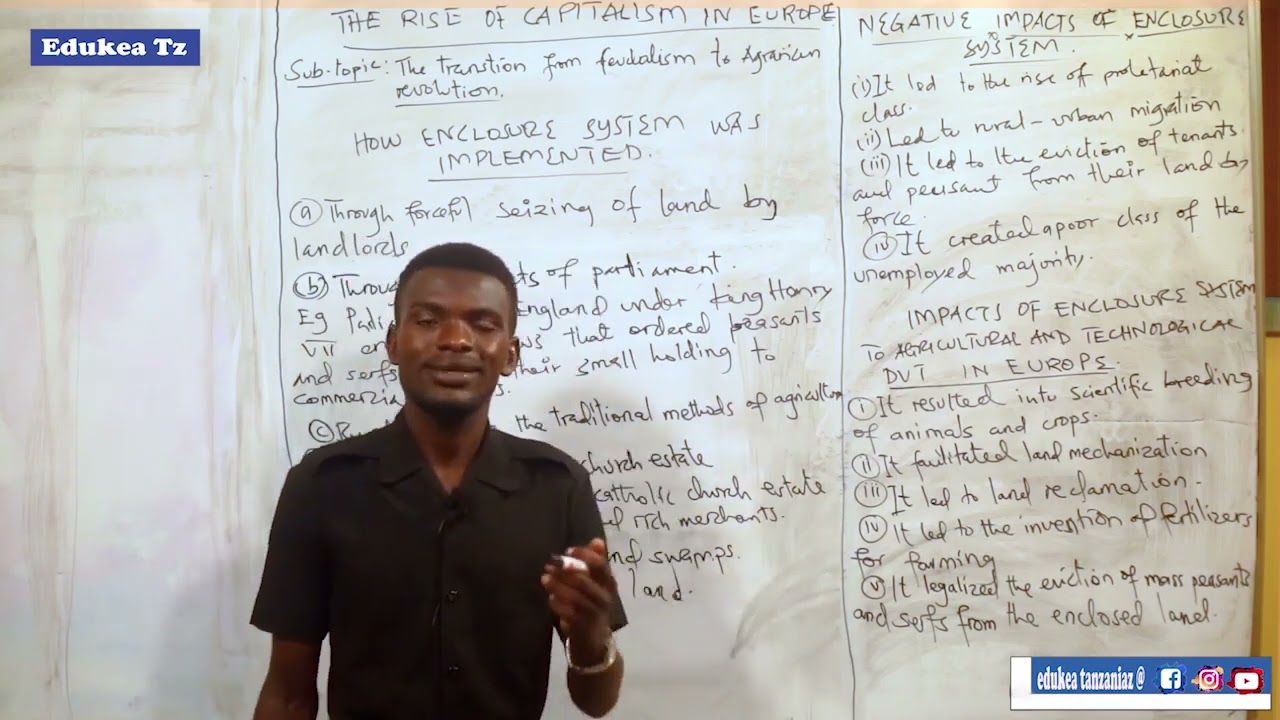 Edukea Tz
THE RISE OF CAPITALISM IN EUROPE
Sub-topic: The transtion from feudalism to Agrarian
revolution.
HOW ENCLOSURE SYSTEM WAS
IMPLEMENTED.
(a) Through forceful seizing of land by
landlords
(b) Throu ts of parliament.
Eg England under King Henry
VII that ordered peasants
and serfs their small holding to
commercia
(c) the traditional methods of agriculture
church estate
catholic church estate
rich merchants.
and swamps.
land.
NEGATIVE IMPACTS OF ENCLOSURE
SYSTEM.
(i) It led to the rise of proletariat
class.
(ii) Led to rural-urban migration
(iii) It led to the eviction of tenants
and peasant from their land by
force.
(iv) It created a poor class of the
unemployed majority.
IMPACTS OF ENCLOSURE SYSTEM
TO AGRICULTURAL AND TECHNOLOGICAL
DVT IN EUROPE.
(i) It resulted into scientific breeding
of animals and crops.
(ii) It facilitated land mechanization
(iii) It led to land reclamation.
(iv) It led to the invention of fertilizers
for farming
(v) It legalized the eviction of mass peasants
and serfs from the enclosed land.
edukea tanzaniaz @